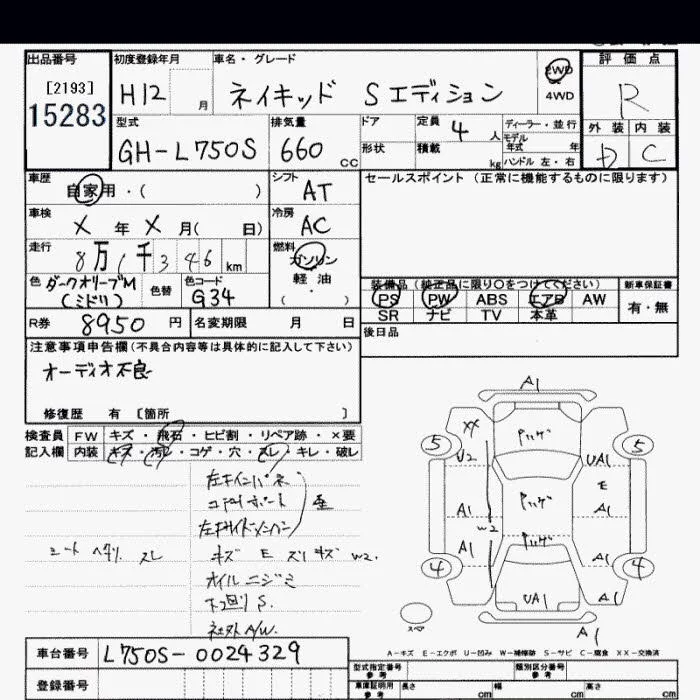 出品番号 初度登録年月 車名・グレード 評価点
[2193]
15283
H12 月 ネイキッド Sエディション 2WD
4WD
R
型式 排気量 ドア 定員 4 人 ディーラー・並行
モデル
年式 年
外装 内装
GH-L750S 660 cc 形状 積載 kg ハンドル 左・右
D C
車歴 自家用・( ) シフト AT セールスポイント(正常に機能するものに限ります)
車検 X 年 X 月( 日) 冷房 AC
走行 8万1千346 km 燃料 ガソリン
軽油
・
( )
色 ダークオリーブM
(ミドリ) 色替 色コード
G34
装備品(純正品に限り○をつけてください) 新車保証書
PS PW ABS エアB AW 有・無
SR ナビ TV 本革
R券 8950 円 名変期限 月 日
後日品
注意事項申告欄(不具合内容等は具体的に記入して下さい)
オーディオ不良
修復歴 有 [箇所 ]
検査員 FW キズ・飛石・ヒビ割・リペア跡・×要
記入欄 内装 キズ・汚レ・コゲ・穴・スレ・キレ・破レ
左右インパネ
コアサポート
左右サイドメンバー
シート ヘタリ スレ
キズ E スリキズ W2.
オイルニジミ
下廻りS.
社外A/W.
A1
XX
U2
5
5
UA1
E
A1
A1
A1
A1
W2
4
4
UA1
A1
A1
スペア
A-キズ E-エクボ U-凹み W-補修跡 S-サビ C-腐食 XX-交換済
車台番号 L750S-0024329
登録番号
型式指定番号
参考
類別区分番号
参考
車庫証明用
参考
長さ cm 幅 cm 高さ cm